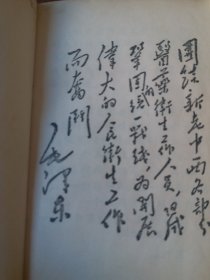 團結新老中西各部分
醫藥衛生工作人員,組成
鞏固的統一戰綫,為開展
偉大的人民衛生工作
而奮鬥
毛澤東